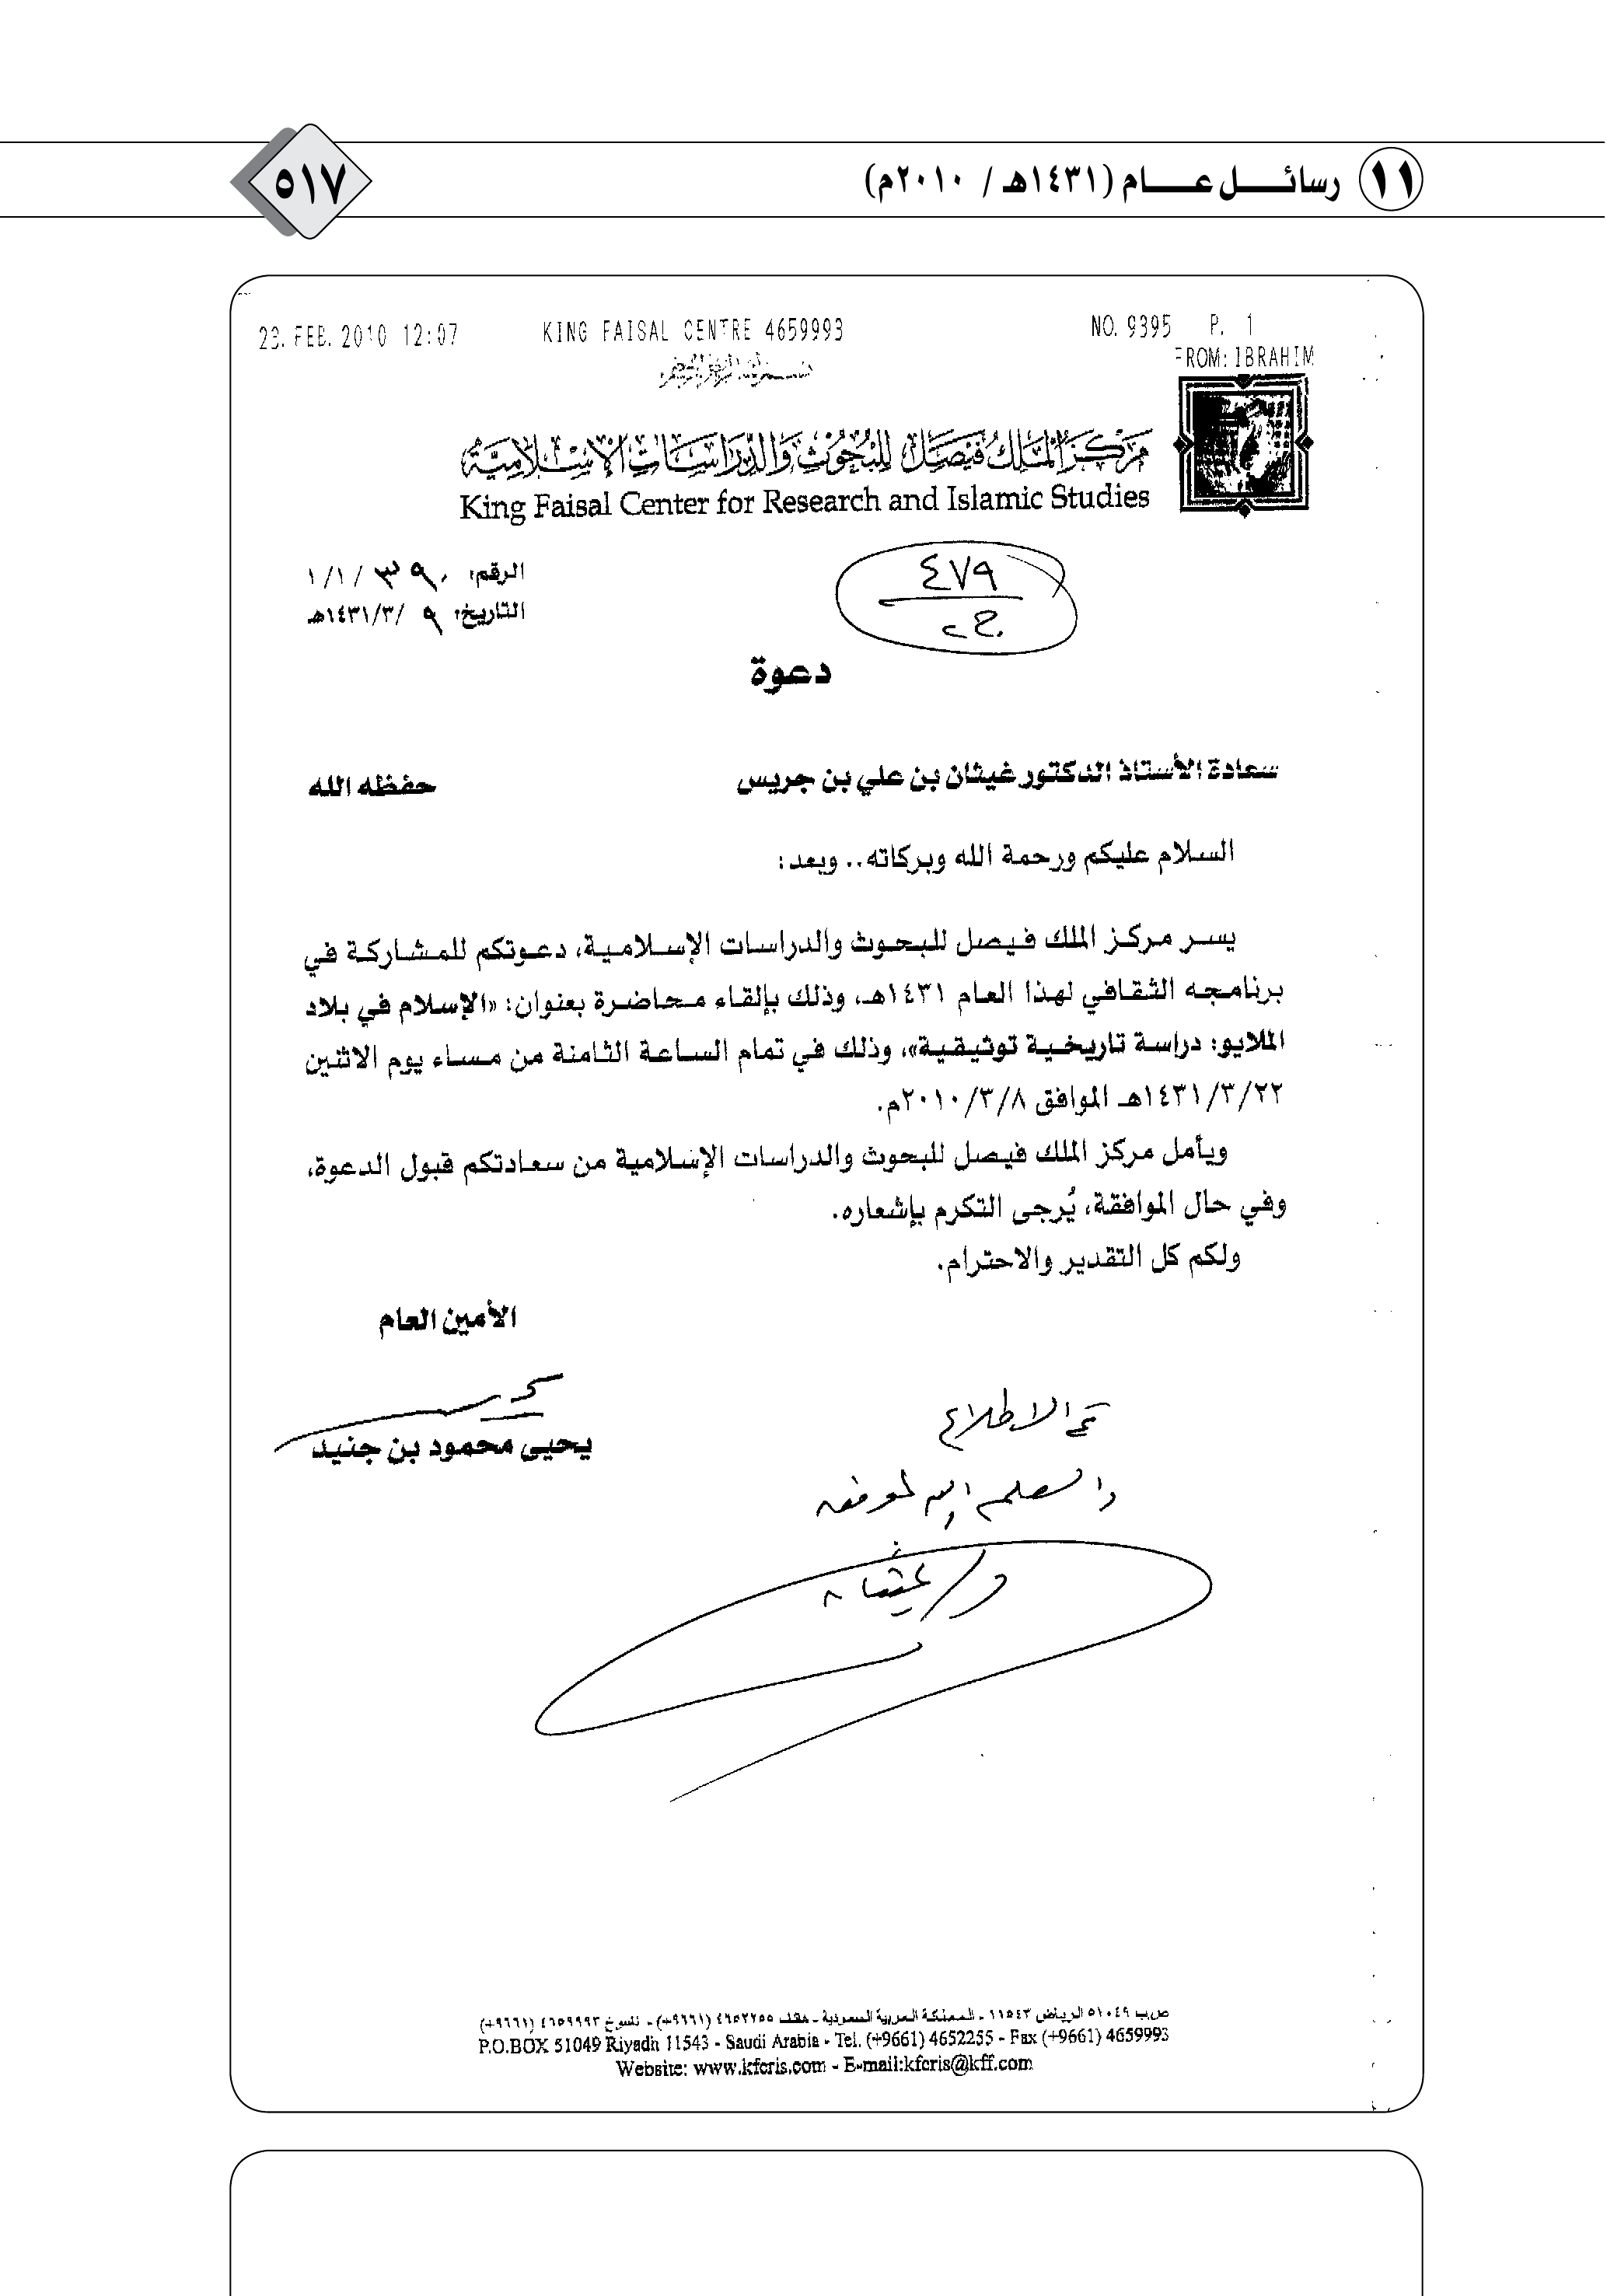 ١١ رسائل عام (١٤٣١هـ / ٢٠١٠م)
٥١٧
23. FEB. 2010 12:07 KING FAISAL CENTRE 4659993 NO. 9395 P. 1
FROM:IBRAHIM
مركز الملك فيصل للبحوث والدراسات الإسلامية
King Faisal Center for Research and Islamic Studies
الرقم: ٣٩٠ /١/١
التاريخ: ٩ /١٤٣١/٣هـ
٤٧٩
دعوة
سعادة الأستاذ الدكتور غيثان بن علي بن جريس حفظه الله
السلام عليكم ورحمة الله وبركاته.. وبعد:
يسر مركز الملك فيصل للبحوث والدراسات الإسلامية، دعوتكم للمشاركة في
برنامجه الثقافي لهذا العام ١٤٣١هـ، وذلك بإلقاء محاضرة بعنوان: «الإسلام في بلاد
الملايو: دراسة تاريخية توثيقية»، وذلك في تمام الساعة الثامنة من مساء يوم الاثنين
١٤٣١/٣/٢٢هـ الموافق ٢٠١٠/٣/٨م.
ويأمل مركز الملك فيصل للبحوث والدراسات الإسلامية من سعادتكم قبول الدعوة،
وفي حال الموافقة، يُرجى التكرم بإشعاره.
ولكم كل التقدير والاحترام.
الأمين العام
يحيى محمود بن جنيد
تم الاطلاع
د/ غيثان
ص.ب ٥١٠٤٩ الرياض ١١٥٤٣ - المملكة العربية السعودية - هاتف ٤٦٥٢٢٥٥ (٩٦٦١+) - ناسوخ ٤٦٥٩٩٩٣ (٩٦٦١+)
P.O.BOX 51049 Riyadh 11543 - Saudi Arabia - Tel. (+9661) 4652255 - Fax (+9661) 4659993
Website: www.kfcris.com - E-mail:kfcris@kff.com